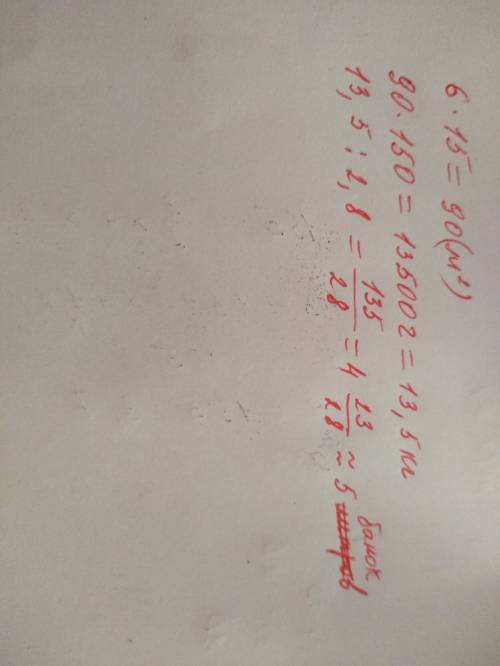 6 · 15 = 90 (м²)
90 · 150 = 13500 г = 13,5 кг
13,5 : 2,8 = 135/28 = 4 23/28 ≈ 5 банок